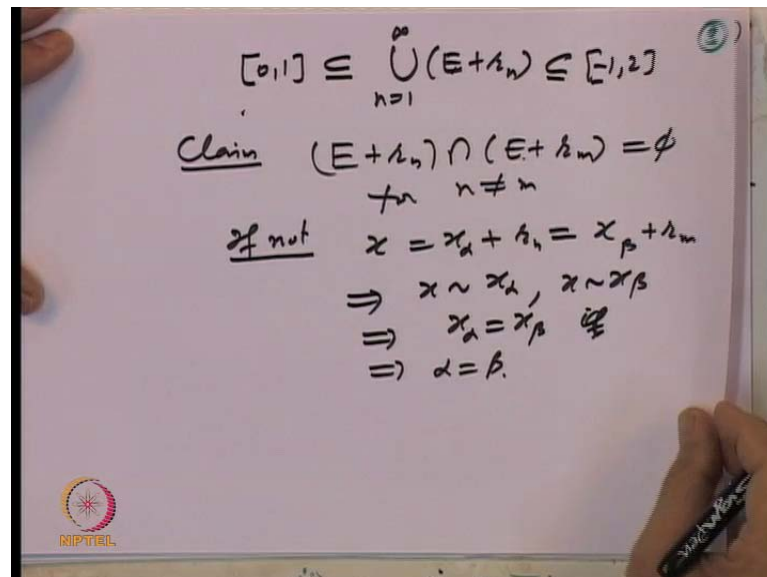 [0,1] ⊆ ⋃_{n=1}^{∞} (E+r_n) ⊆ [-1,2]
Claim (E+r_n) ∩ (E+r_m) = ϕ
for n ≠ m
If not x = x_α + r_n = x_β + r_m
⇒ x ~ x_α, x ~ x_β
⇒ x_α = x_β
⇒ α = β.
NPTEL